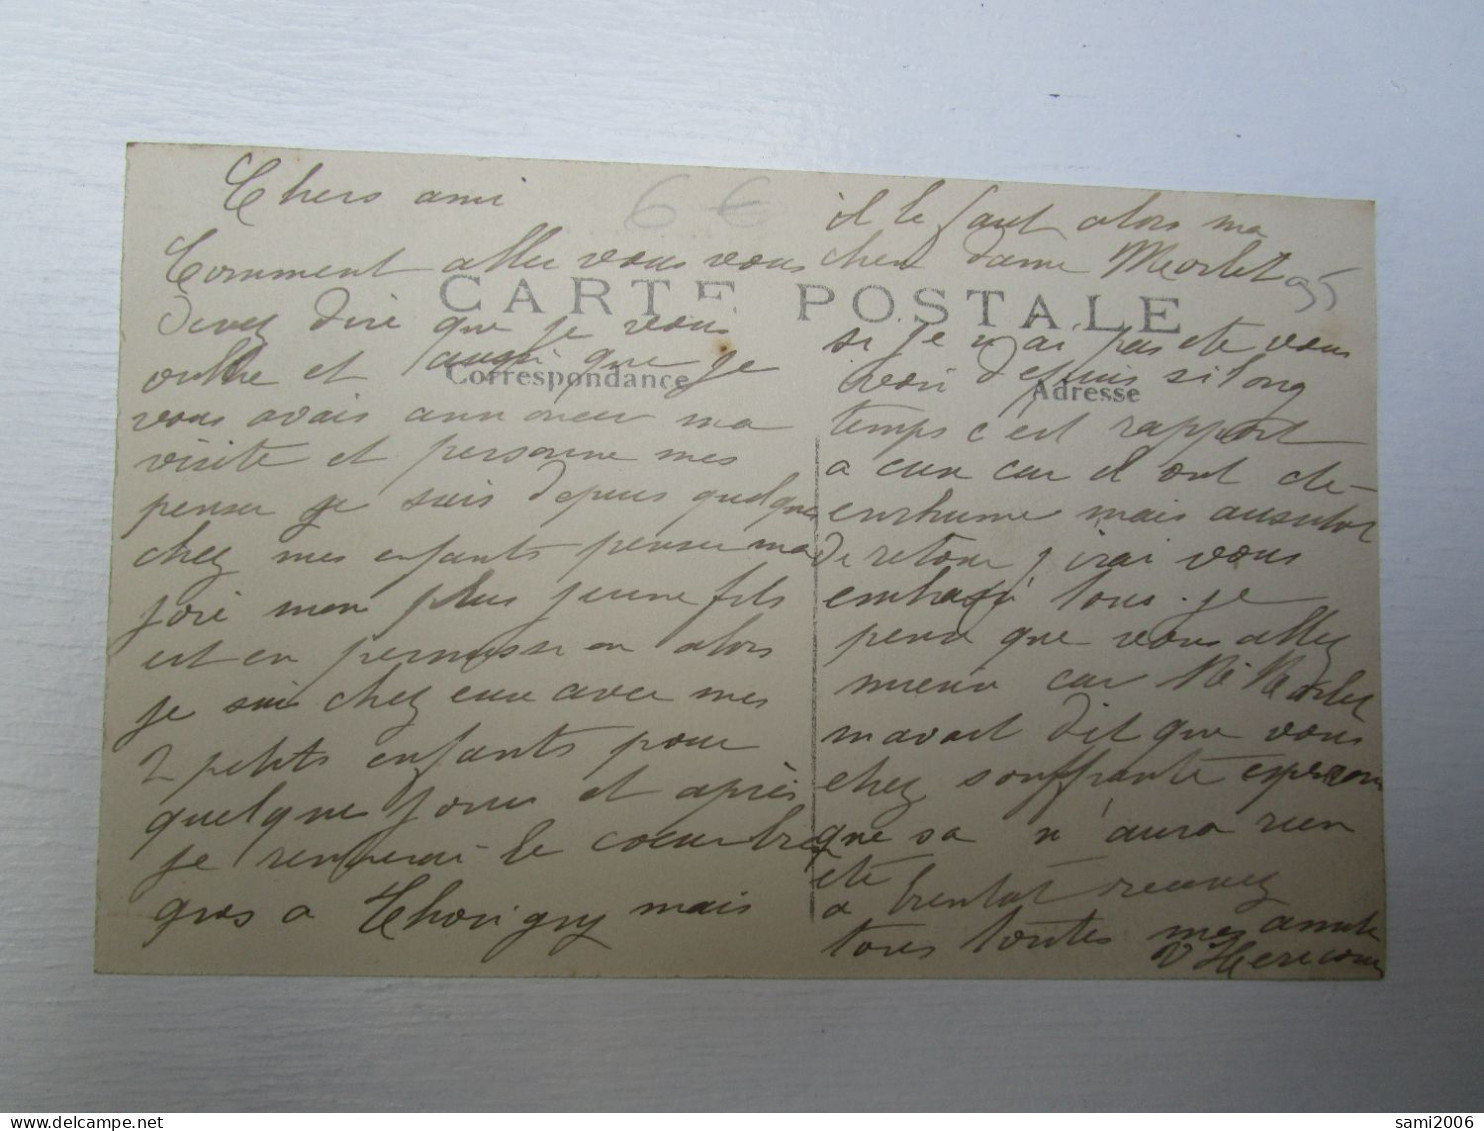 Chers ami
Comment aller vous vous
devez dire que je vous
oublie et aussi que je
vous avais annoncer ma
visite et personne mes
penser je suis depuis quelque
chez mes enfants penser ma
joie mon plus jeune fils
est en permission alors
je suis chez eux avec mes
2 petits enfants pour
quelque jour et après
je renterai le coeur bien
gros a Thorigny mais
6 €
95
CARTE POSTALE
Correspondance
Adresse
il le faut alors ma
cher dame Morlet
si je n'ai pas ete vous
voir depuis si long
temps c'est rapport
a eux car il ont ete
enrhume mais aussitot
de retour j'irai vous
embrasse tous. je
pense que vous allez
mieux car Morlet
mavait dit que vous
etiez souffrante esperons
que sa n'aura rien
ete
a bientot recevez
tous toutes mes amitie
V Hericour
sami2006
delcampe.net